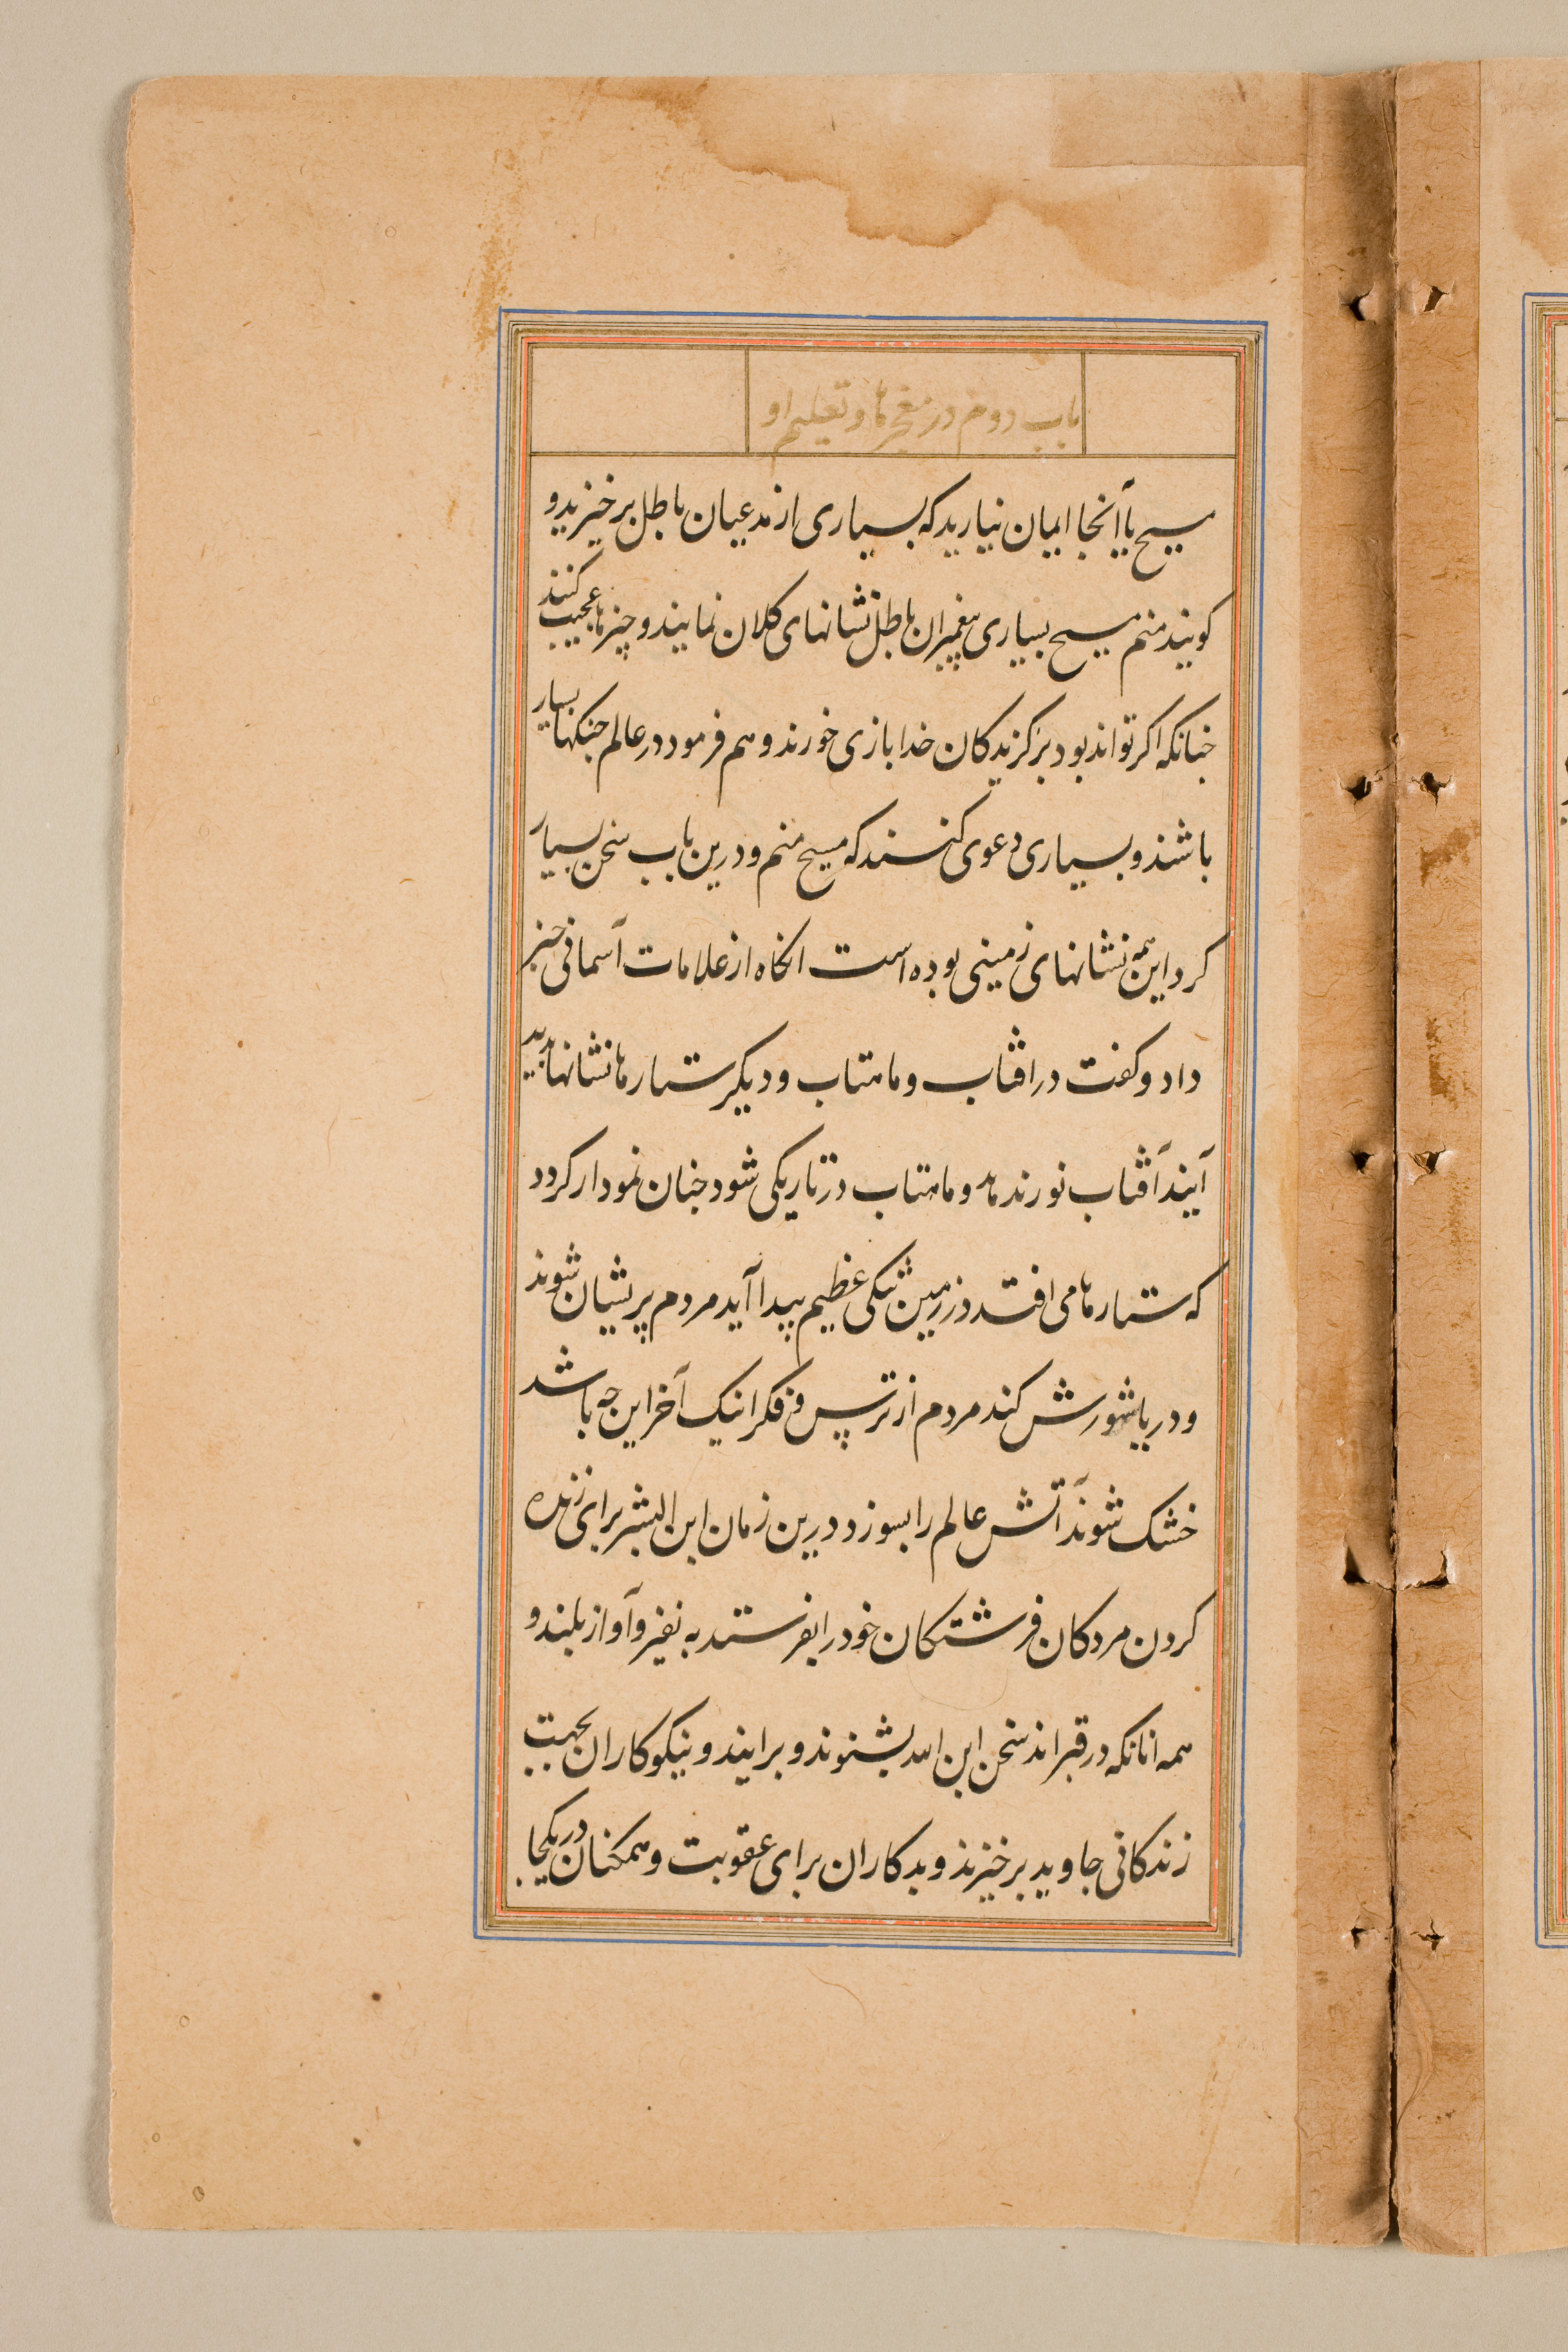 باب دوم در معجزها و تعلیم او
مسیح یا آنجا ایمان نیارید که بسیاری از مدعیان باطل برخیزید و
کویند منم مسیح بسیاری پیغمبران باطل نشانهای کلان نمایند و چیزها عجیب کنند
جنانکه اکر تواند بود برکزیدکان خدا بازی خورند و هم فرمود در عالم جنکها بسیار
باشند و بسیاری دعوی کنند که مسیح منم و درین باب سخن بسیار
کرد این همه نشانهای زمینی بوده است انکاه از علامات آسمانی خبر
داد و کفت در افتاب و ماهتاب و دیکر ستارها نشانها پدید
آیند آفتاب نور ندهد و ماهتاب در تاریکی شود جنان نمودار کردد
که ستارها می افتد در زمین تنکی عظیم پیدا آید مردم پریشان شوند
و دریا شورش کند مردم از ترس و فکر اینک آخر این جه باشد
خشک شوند آتش عالم را بسوزد درین زمان ابن البشر برای زنده
کردن مردکان فرشتکان خود را بفرستد به نفیر و آواز بلند و
همه انانکه در قبر اند سخن ابن الله بشنوند و برایند و نیکوکاران بجهت
زندکانی جاوید برخیزند و بدکاران برای عقوبت و همکنان در یکجا